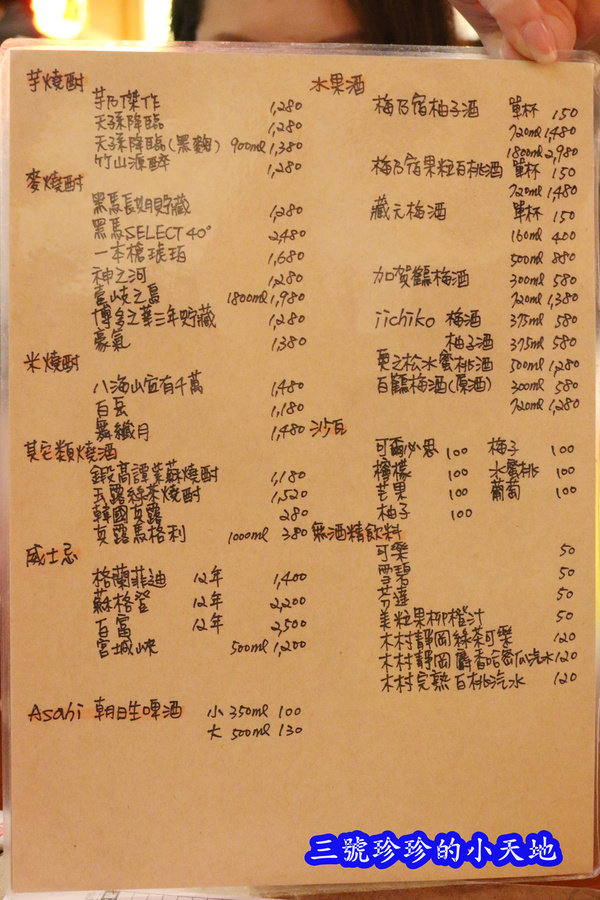 芋燒酎
芋乃傑作 1,280
天孫降臨 1,280
天孫降臨(黑麴) 900ml 1,380
竹山源醉 1,280
麥燒酎
黑馬長期貯藏 1,280
黑馬SELECT 40° 2,480
一本槍琥珀 1,680
神之河 1,280
壹岐之島 1800ml 1,980
博多之華三年貯藏 1,280
豪氣 1,380
米燒酎
八海山宜有千萬 1,480
百岳 1,180
舞纖月 1,480
其它類燒酒
鍛高譚紫蘇燒酎 1,180
玉露綠茶燒酎 1,520
韓國真露 280
真露馬格利 1000ml 380
威士忌
格蘭菲迪 12年 1,400
蘇格登 12年 2,200
百富 12年 2,500
宮城峽 500ml 1,200
Asahi 朝日生啤酒 小 350ml 100
大 500ml 130
水果酒
梅乃宿柚子酒 單杯 150
720ml 1,480
1800ml 2,980
梅乃宿果粒白桃酒 單杯 150
720ml 1,480
藏元梅酒 單杯 150
160ml 400
500ml 880
加賀鶴梅酒 300ml 580
720ml 1,380
iichiko 梅酒 375ml 580
柚子酒 375ml 580
更之松水蜜桃酒 500ml 1,280
白鶴梅酒(原酒) 300ml 580
720ml 1,280
沙瓦
可爾必思 100 梅子 100
檸檬 100 水蜜桃 100
芒果 100 葡萄 100
柚子 100
無酒精飲料
可樂 50
雪碧 50
芬達 50
美粒果柳橙汁 50
木村靜岡綠茶可樂 120
木村靜岡麝香哈密瓜汽水 120
木村完熟白桃汽水 120
三號珍珍的小天地